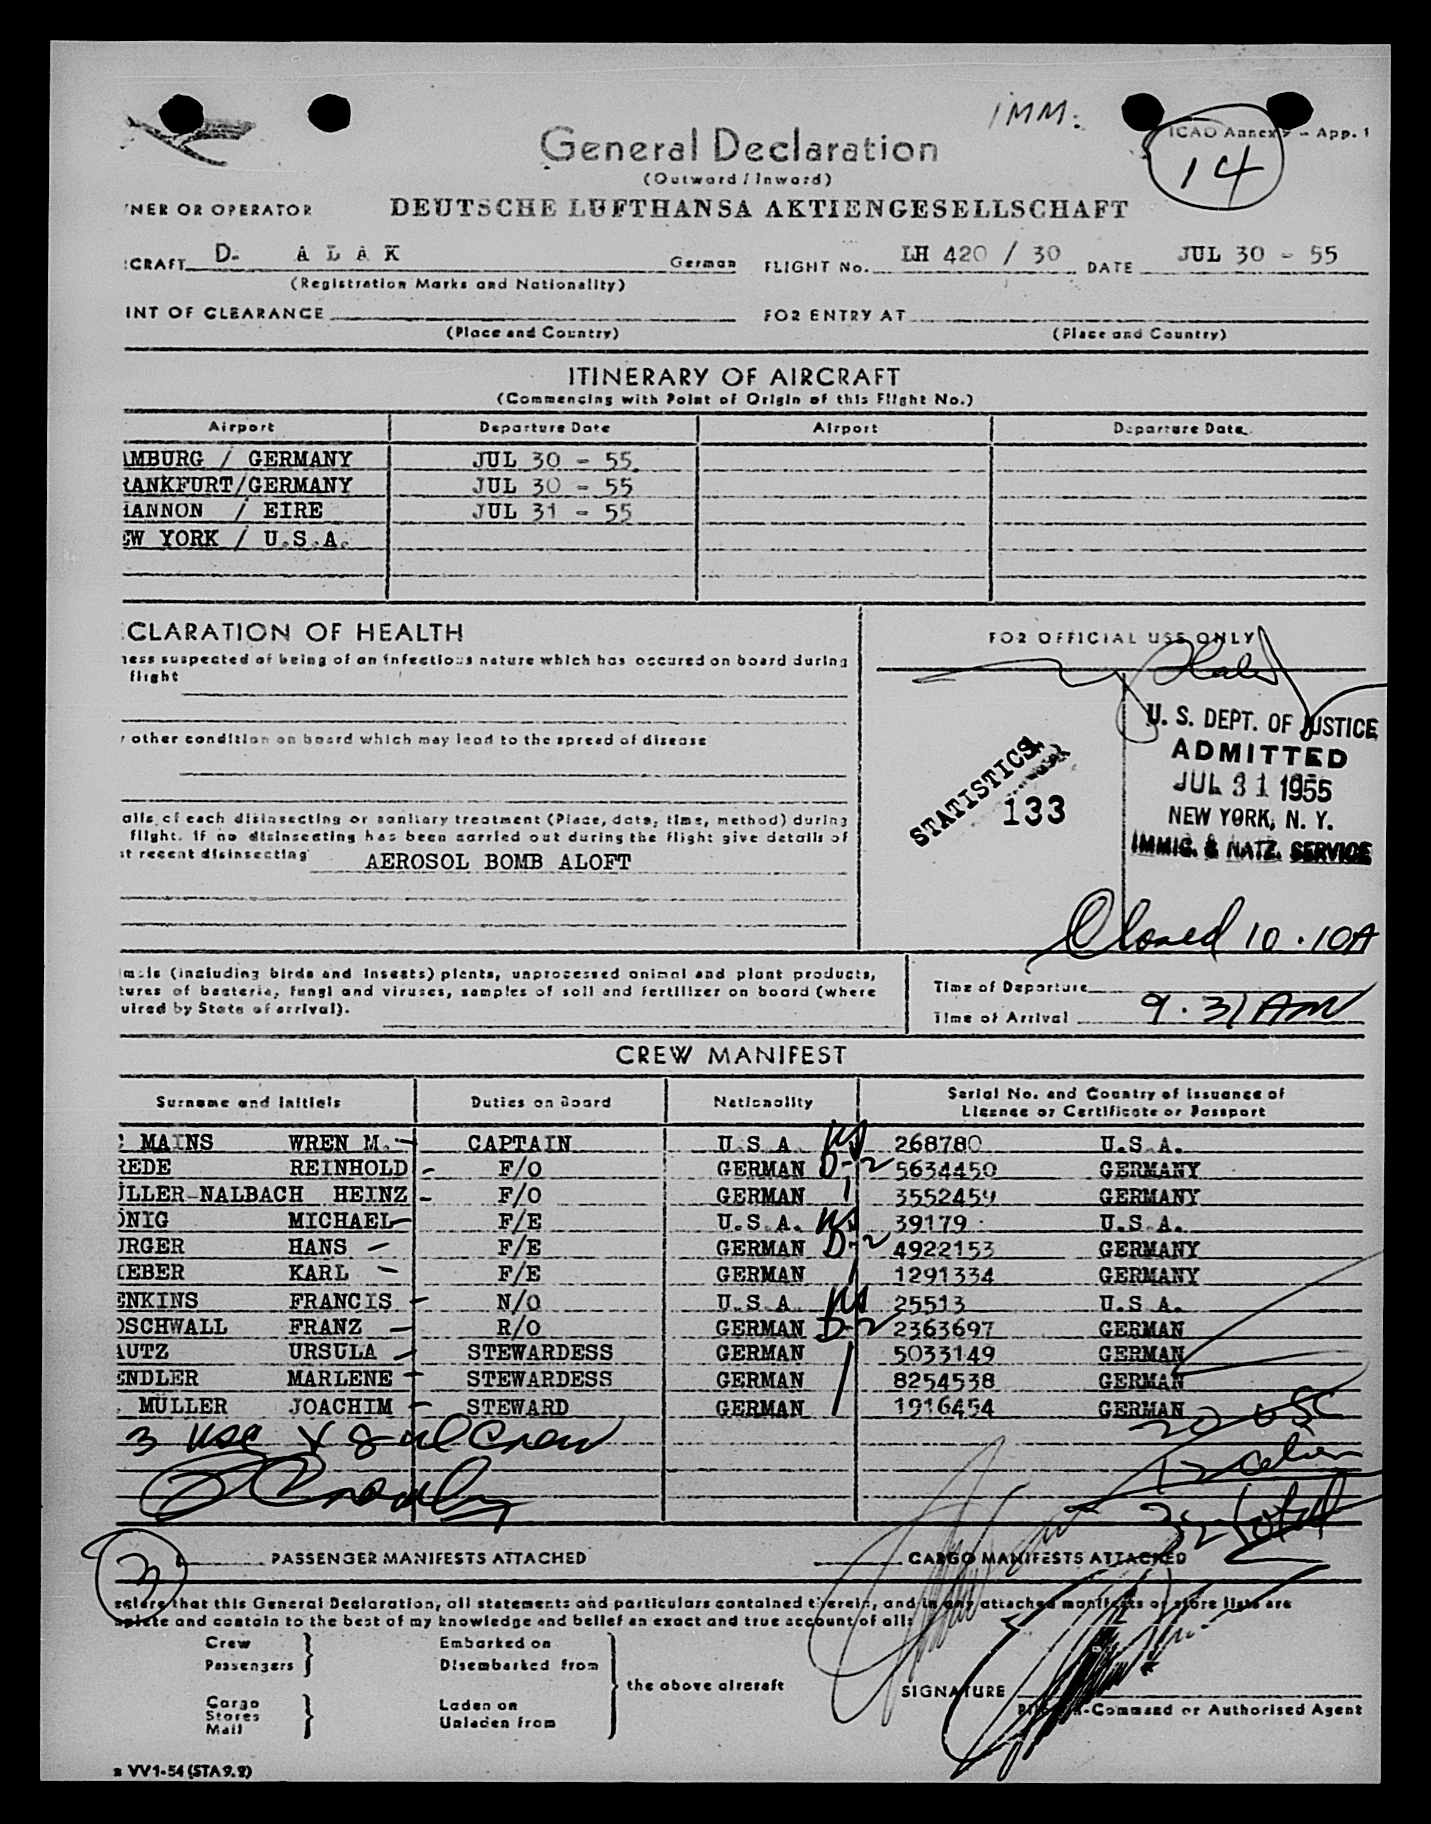 IMM.
ICAO Annex 9 - App. 1
14
General Declaration
(Outward / Inward)
NER OR OPERATOR DEUTSCHE LUFTHANSA AKTIENGESELLSCHAFT
CRAFT D- A L A K German FLIGHT No. LH 420 / 30 DATE JUL 30 - 55
(Registration Marks and Nationality)
INT OF CLEARANCE FOR ENTRY AT
(Place and Country) (Place and Country)
ITINERARY OF AIRCRAFT
(Commencing with Point of Origin of this Flight No.)
Airport Departure Date Airport Departure Date
AMBURG / GERMANY JUL 30 - 55
RANKFURT/GERMANY JUL 30 - 55
HANNON / EIRE JUL 31 - 55
EW YORK / U.S.A.
CLARATION OF HEALTH
FOR OFFICIAL USE ONLY
ness suspected of being of an infectious nature which has occured on board during
flight
U. S. DEPT. OF JUSTICE
ADMITTED
JUL 31 1955
NEW YORK, N. Y.
IMMIG. & NATZ. SERVICE
STATISTICS
133
other condition on board which may lead to the spread of disease
ails of each disinsecting or sanitary treatment (Place, date, time, method) during
flight. If no disinsecting has been carried out during the flight give details of
st recent disinsecting AEROSOL BOMB ALOFT
Closed 10.10A
imals (including birds and insects) plants, unprocessed animal and plant products,
tures of bacteria, fungi and viruses, samples of soil and fertilizer on board (where
uired by State of arrival).
Time of Departure
Time of Arrival 9.31 AM
CREW MANIFEST
Surname and Initials Duties on Board Nationality Serial No. and Country of Issuance of
License or Certificate or Passport
MAINS WREN M. - CAPTAIN U.S.A. 268780 U.S.A.
REDE REINHOLD - F/O GERMAN D-2 5634450 GERMANY
ÜLLER-NALBACH HEINZ - F/O GERMAN 3552459 GERMANY
ÖNIG MICHAEL - F/E U.S.A. 39179 U.S.A.
URGER HANS - F/E GERMAN D-2 4922153 GERMANY
IEBER KARL - F/E GERMAN 1291334 GERMANY
ENKINS FRANCIS - N/O U.S.A. 25513 U.S.A.
OSCHWALL FRANZ - R/O GERMAN D-2 2363697 GERMAN
AUTZ URSULA - STEWARDESS GERMAN 5033149 GERMAN
ENDLER MARLENE - STEWARDESS GERMAN 8254538 GERMAN
MÜLLER JOACHIM - STEWARD GERMAN 1916454 GERMAN
3 USC & 8 al Crew
20 USC
12 alien
32 total
3 PASSENGER MANIFESTS ATTACHED CARGO MANIFESTS ATTACHED
eclare that this General Declaration, all statements and particulars contained therein, and in any attached manifests or store lists are
mplete and contain to the best of my knowledge and belief an exact and true account of all:
Crew Embarked on
Passengers Disembarked from
the above aircraft
Cargo Laden on
Stores Unladen from
Mail
SIGNATURE
Pilot-in-Command or Authorised Agent
VV1-54 (STA 9.2)